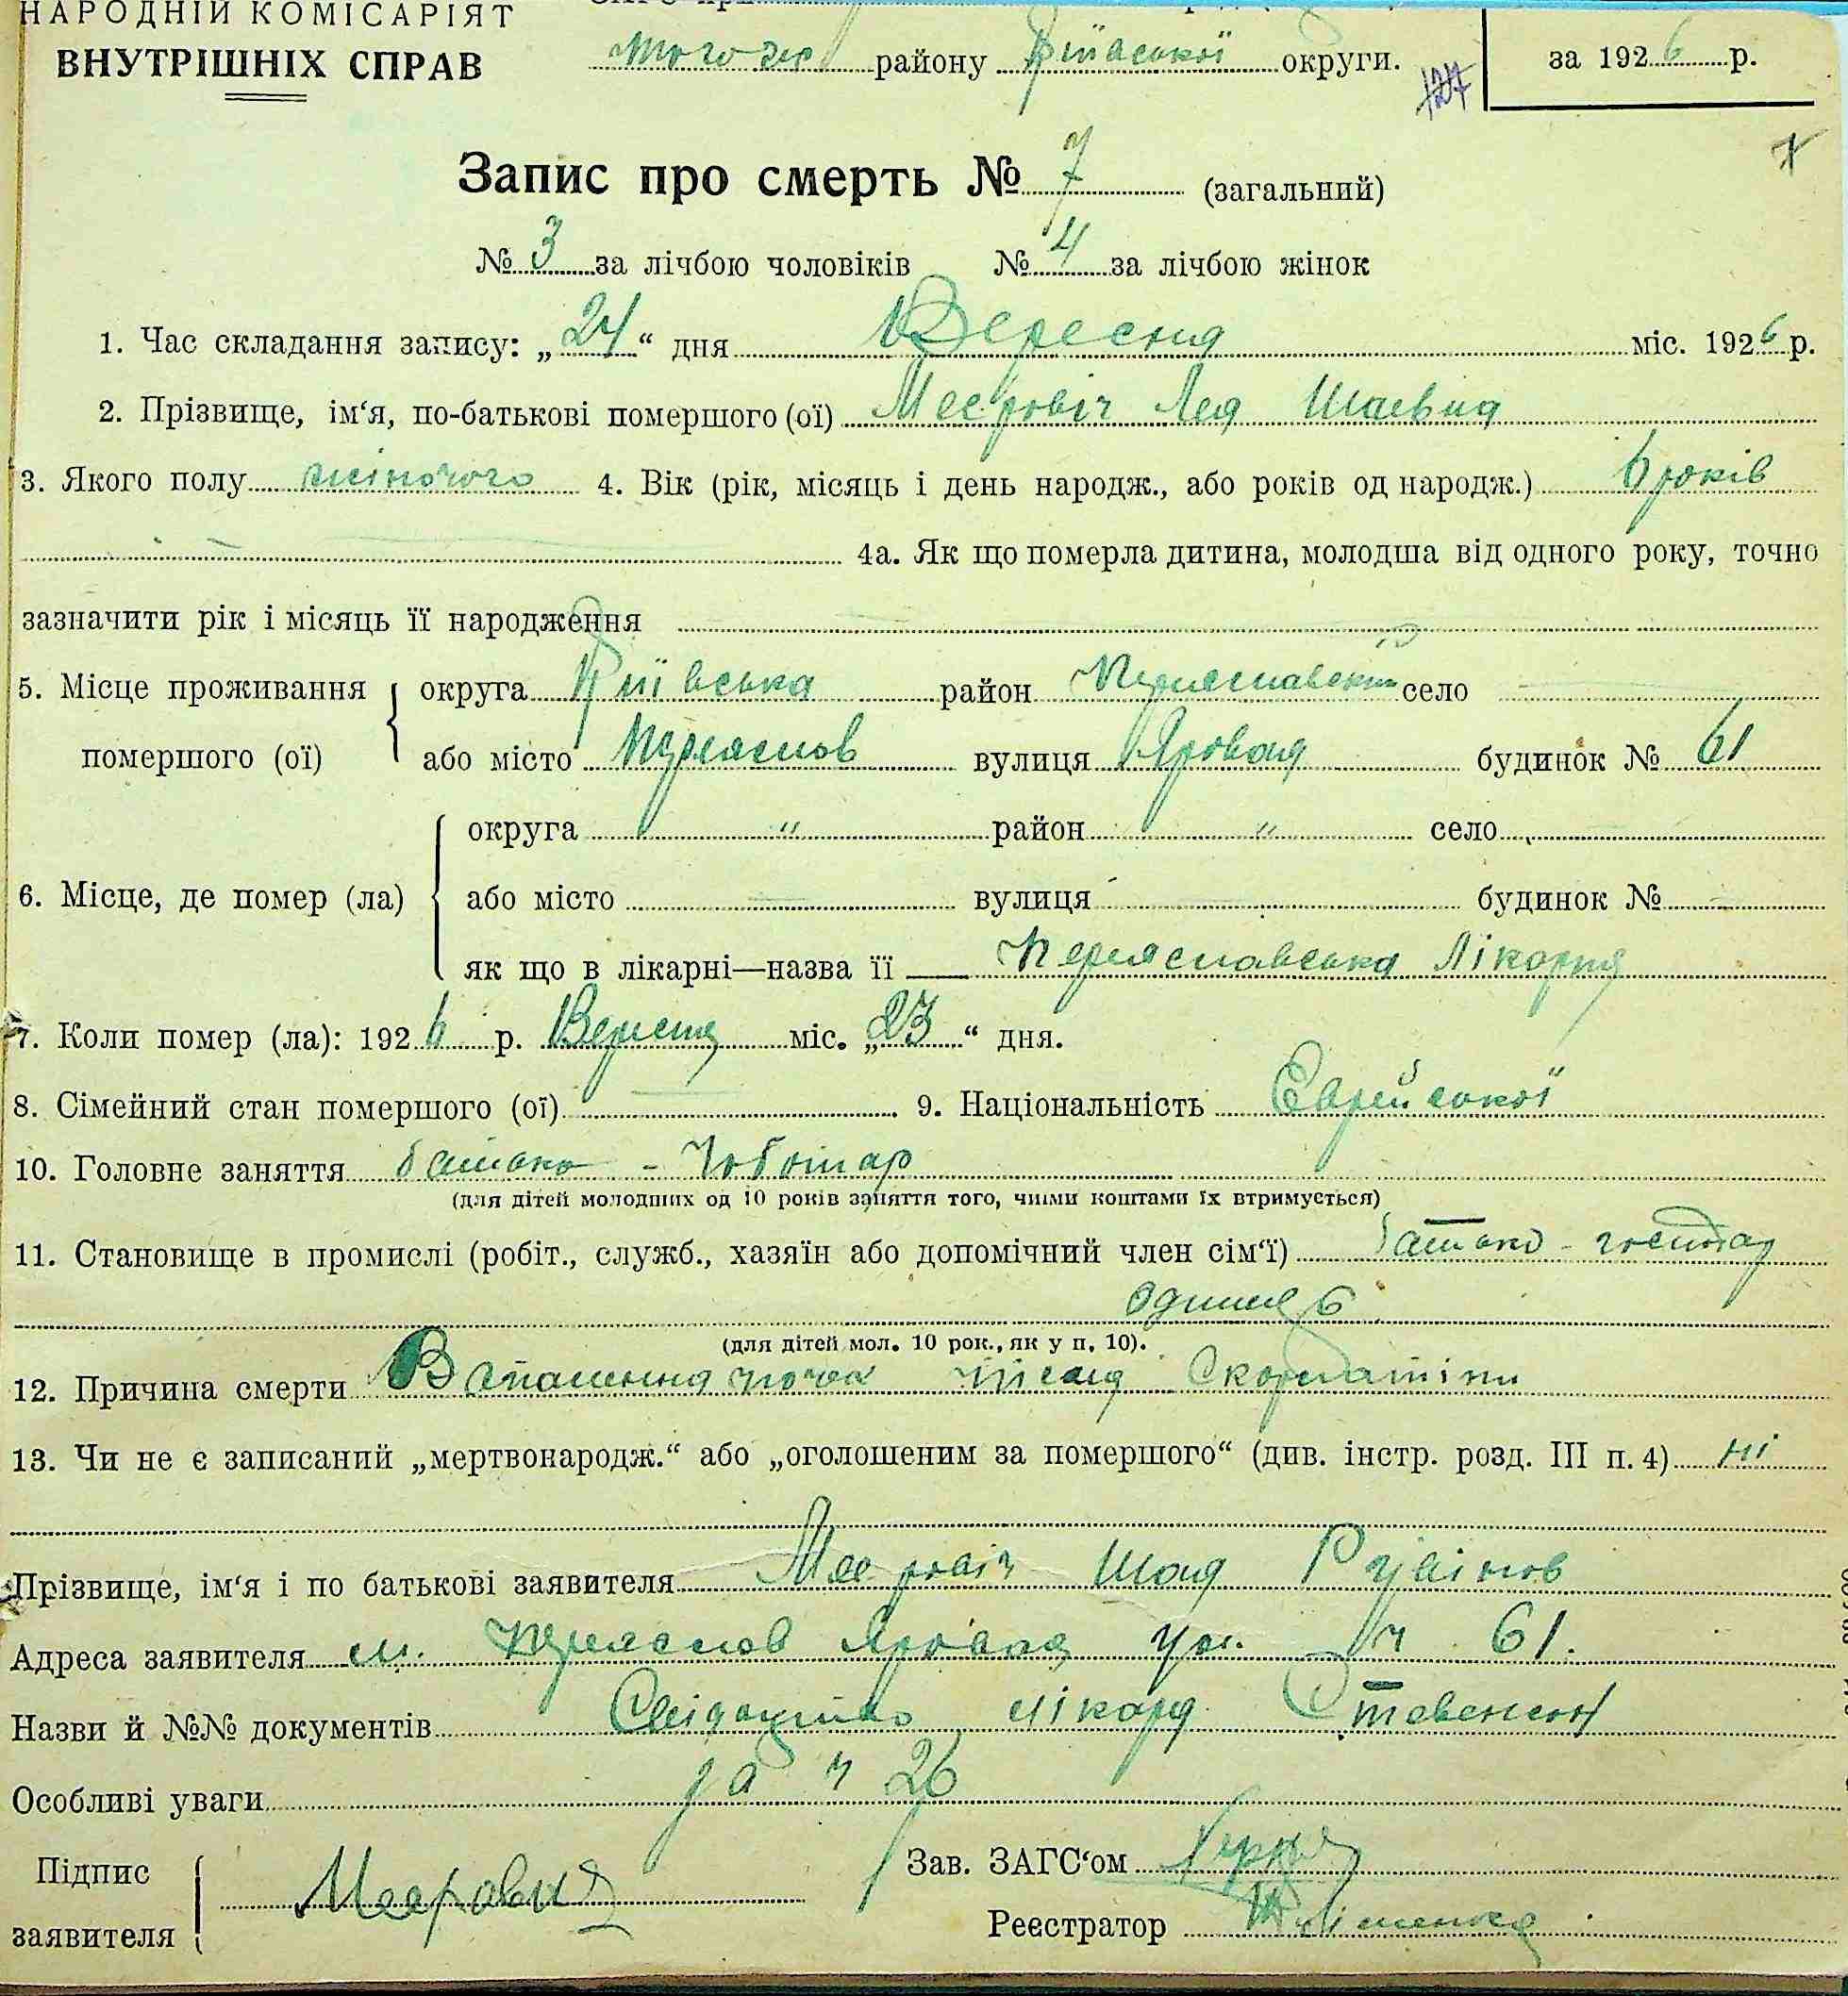 НАРОДНІЙ КОМІСАРІЯТ
ВНУТРІШНІХ СПРАВ
району Київської округи.
за 1926 р.
127
Запис про смерть № 7 (загальний)
№ 3 за лічбою чоловіків № 4 за лічбою жінок
1. Час складання запису: „24“ дня Вересня міс. 1926 р.
2. Прізвище, ім‘я, по-батькові помершого (ої) Меєровіч Лея Шаевна
3. Якого полу жіночого 4. Вік (рік, місяць і день народж., або років од народж.) 6 років
4а. Як що померла дитина, молодша від одного року, точно
зазначити рік і місяць її народження
5. Місце проживання помершого (ої) округа Київська район Переяславский село
або місто Переяслов вулиця Яровая будинок № 61
6. Місце, де помер (ла) округа " район " село
або місто — вулиця — будинок № —
як що в лікарні—назва її — Переяславська Лікарня
7. Коли помер (ла): 1926 р. Вересня міс. „23“ дня.
8. Сімейний стан помершого (ої) — 9. Національність Єврейської
10. Головне заняття батько - Чоботар
(для дітей молодших од 10 років заняття того, чиїми коштами їх втримується)
11. Становище в промислі (робіт., служб., хазяїн або допомічний член сім‘ї) батько - господар
(для дітей мол. 10 рок., як у п. 10).
12. Причина смерти Запалення почок після Скорлатіни
13. Чи не є записаний „мертвонародж.“ або „оголошеним за помершого“ (див. інстр. розд. III п. 4) ні
Прізвище, ім‘я і по батькові заявителя Меєровіч Шая Рувінов
Адреса заявителя м. Переяслов Яровая ул. ч 61.
Назви й №№ документів Свідоцтво лікаря Стевенсон
за ч 26
Особливі уваги
Підпис заявителя Меерович
Зав. ЗАГС‘ом
Реєстратор